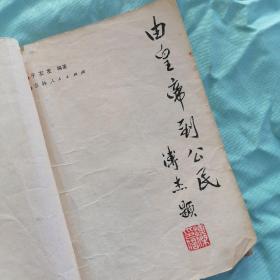 由皇帝到公民
溥杰题
编著
人民出版社